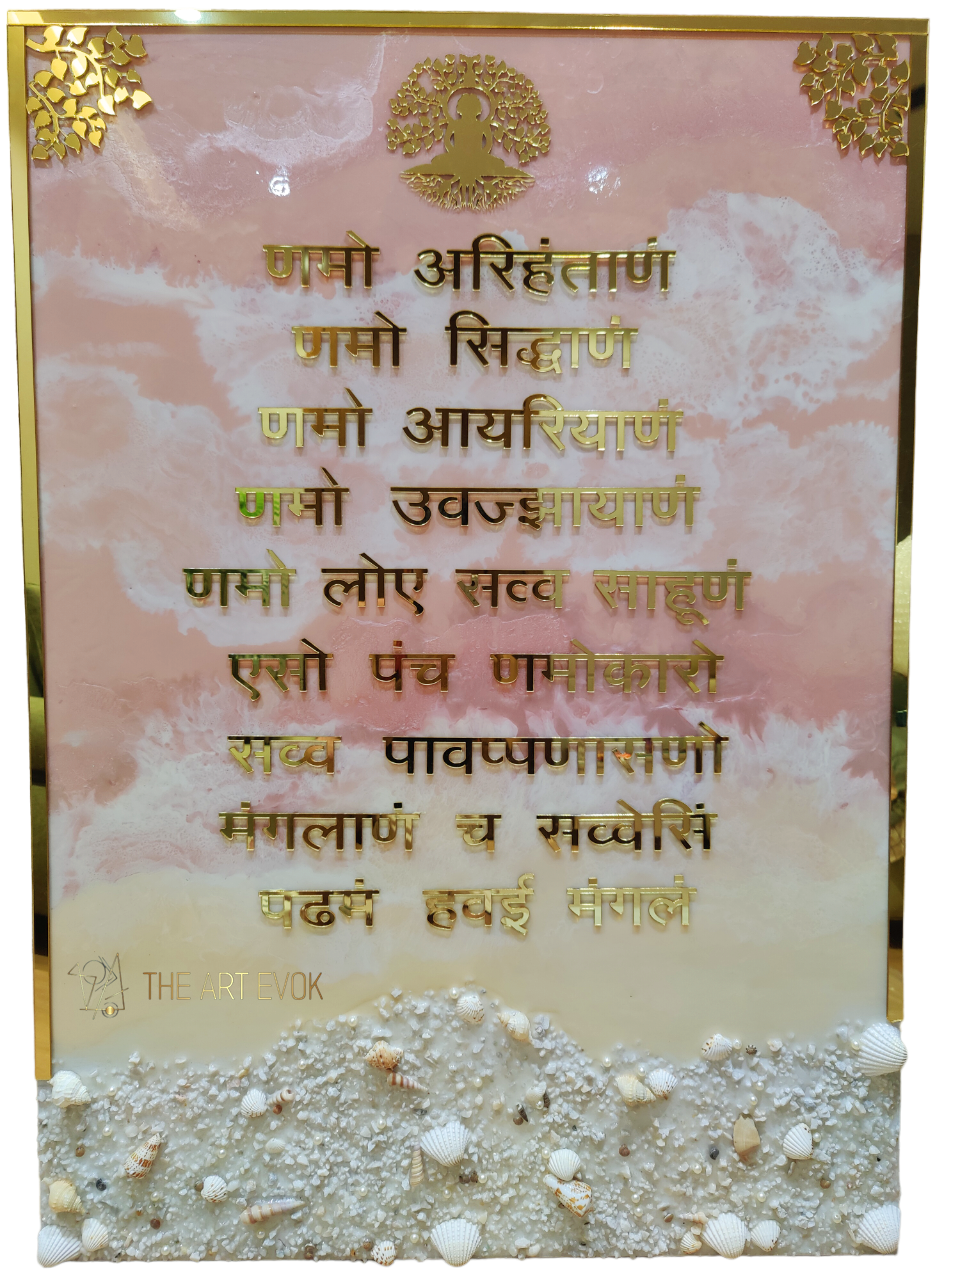 णमो अरिहंताणं
णमो सिद्धाणं
णमो आयरियाणं
णमो उवज्झायाणं
णमो लोए सव्व साहूणं
एसो पंच णमोकारो
सव्व पावप्पणासणो
मंगलाणं च सव्वेसिं
पढमं हवई मंगलं
THE ART EVOK